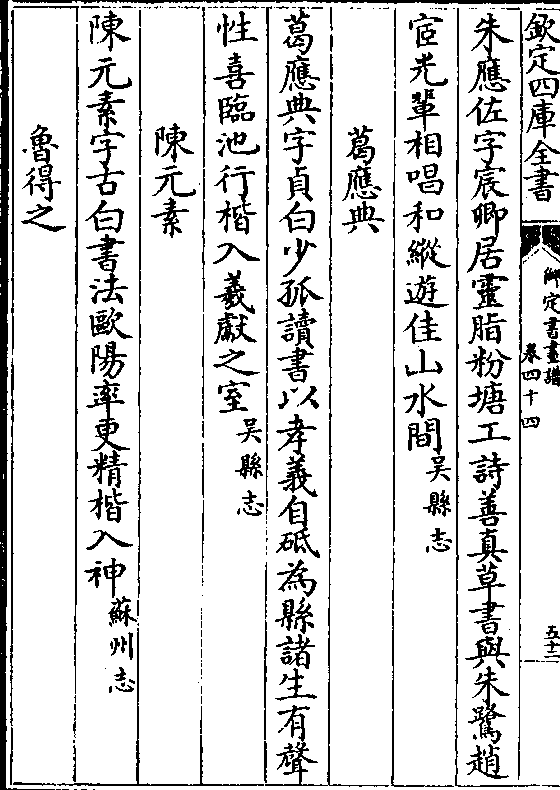 欽定四庫全書
御定書畫譜
卷四十四
五十二
朱應佐字宸卿居靈脂粉塘工詩善真草書與朱鷺趙
宧光輩相唱和縱遊佳山水間吳縣志
葛應典
葛應典字貞白少孤讀書以孝義自砥為縣諸生有聲
性喜臨池行楷入羲獻之室吳縣志
陳元素
陳元素字古白書法歐陽率更精楷入神蘇州志
魯得之